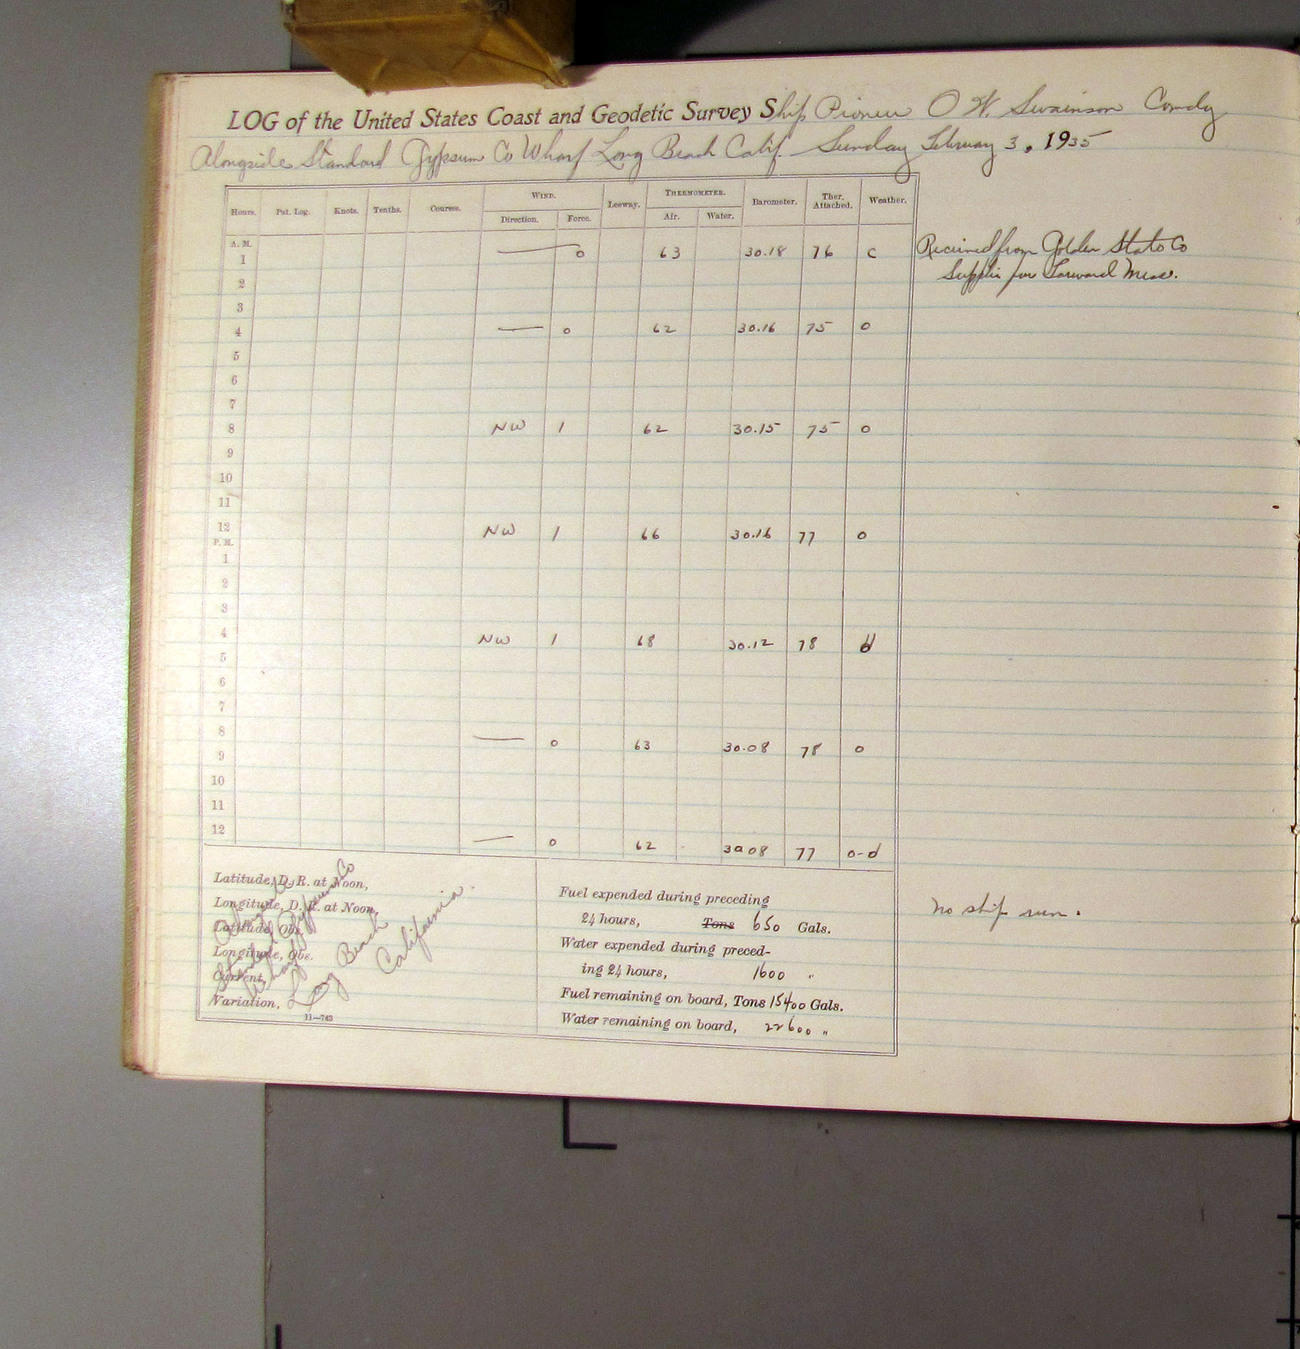 LOG of the United States Coast and Geodetic Survey Ship Pioneer O W. Swainson Comdg
Alongside Standard Gypsum Co Wharf Long Beach Calif. Sunday February 3, 1935
Hours. Pat. Log. Knots. Tenths. Course. WIND. Leeway. THERMOMETER. Barometer. Ther. Attached. Weather.
Direction. Force. Air. Water.
A. M.
1 — 0 63 30.18 76 c Received from Golden State Co
2 Supplies for Forward Mess.
3
4 — 0 62 30.16 75 o
5
6
7
8 NW 1 62 30.15 75 o
9
10
11
12 NW 1 66 30.16 77 o
P. M.
1
2
3
4 NW 1 68 30.12 78 d
5
6
7
8 — 0 63 30.08 78 o
9
10
11
12 — 0 62 30 08 77 o-d
Latitude, D. R. at Noon,
Longitude, D. R. at Noon,
Latitude, Obs.
Longitude, Obs.
Current,
Variation,
Alongside
Standard Gypsum Co
Wharf
Long Beach
California.
11—743
Fuel expended during preceding
24 hours, Tons 650 Gals.
Water expended during preced-
ing 24 hours, 1600 "
Fuel remaining on board, Tons 15400 Gals.
Water remaining on board, 22600 "
No ship run.